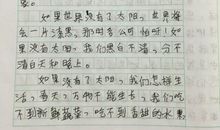 象。
如果世界没有了太阳,世界将
会一片漆黑,那时多么可怕啊!如
果没有太阳,我们黑白不清,分不
清白天和晚上。
如果没有了太阳,我们怎样生
活,春天,万物不能生长,我们吃
不到新鲜蔬菜,吃不到香甜的水果